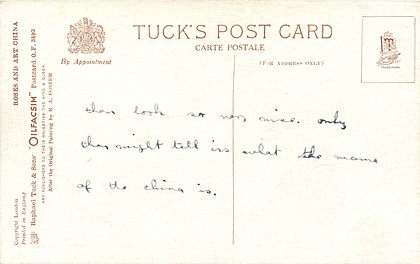 TUCK'S POST CARD
CARTE POSTALE
By Appointment
(FOR ADDRESS ONLY)
ROSES AND ART CHINA
Raphael Tuck & Sons' "OILFACSIM" Postcard O.F. 3493
ART PUBLISHERS TO THEIR MAJESTIES THE KING & QUEEN.
After the Original Painting by R. A. FOSTER
Copyright London
Printed in England
they look so very nice. only
they might tell us what the name
of the china is.